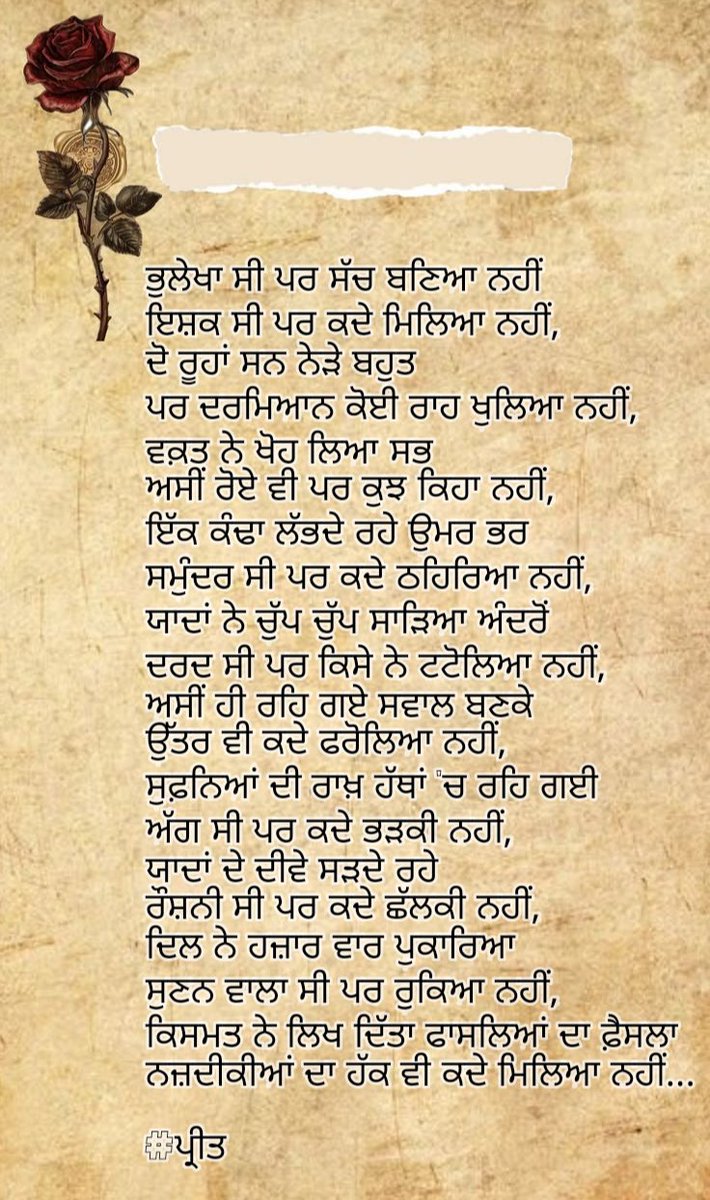 ਭੁਲੇਖਾ ਸੀ ਪਰ ਸੱਚ ਬਣਿਆ ਨਹੀਂ
ਇਸ਼ਕ ਸੀ ਪਰ ਕਦੇ ਮਿਲਿਆ ਨਹੀਂ,
ਦੋ ਰੂਹਾਂ ਸਨ ਨੇੜੇ ਬਹੁਤ
ਪਰ ਦਰਮਿਆਨ ਕੋਈ ਰਾਹ ਖੁਲਿਆ ਨਹੀਂ,
ਵਕ਼ਤ ਨੇ ਖੋਹ ਲਿਆ ਸਭ
ਅਸੀਂ ਰੋਏ ਵੀ ਪਰ ਕੁਝ ਕਿਹਾ ਨਹੀਂ,
ਇੱਕ ਕੰਢਾ ਲੱਭਦੇ ਰਹੇ ਉਮਰ ਭਰ
ਸਮੁੰਦਰ ਸੀ ਪਰ ਕਦੇ ਠਹਿਰਿਆ ਨਹੀਂ,
ਯਾਦਾਂ ਨੇ ਚੁੱਪ ਚੁੱਪ ਸਾੜਿਆ ਅੰਦਰੋਂ
ਦਰਦ ਸੀ ਪਰ ਕਿਸੇ ਨੇ ਟਟੋਲਿਆ ਨਹੀਂ,
ਅਸੀਂ ਹੀ ਰਹਿ ਗਏ ਸਵਾਲ ਬਣਕੇ
ਉੱਤਰ ਵੀ ਕਦੇ ਫਰੋਲਿਆ ਨਹੀਂ,
ਸੁਫ਼ਨਿਆਂ ਦੀ ਰਾਖ਼ ਹੱਥਾਂ 'ਚ ਰਹਿ ਗਈ
ਅੱਗ ਸੀ ਪਰ ਕਦੇ ਭੜਕੀ ਨਹੀਂ,
ਯਾਦਾਂ ਦੇ ਦੀਵੇ ਸੜਦੇ ਰਹੇ
ਰੌਸ਼ਨੀ ਸੀ ਪਰ ਕਦੇ ਛੱਲਕੀ ਨਹੀਂ,
ਦਿਲ ਨੇ ਹਜ਼ਾਰ ਵਾਰ ਪੁਕਾਰਿਆ
ਸੁਣਨ ਵਾਲਾ ਸੀ ਪਰ ਰੁਕਿਆ ਨਹੀਂ,
ਕਿਸਮਤ ਨੇ ਲਿਖ ਦਿੱਤਾ ਫਾਸਲਿਆਂ ਦਾ ਫ਼ੈਸਲਾ
ਨਜ਼ਦੀਕੀਆਂ ਦਾ ਹੱਕ ਵੀ ਕਦੇ ਮਿਲਿਆ ਨਹੀਂ...
#ਪ੍ਰੀਤ